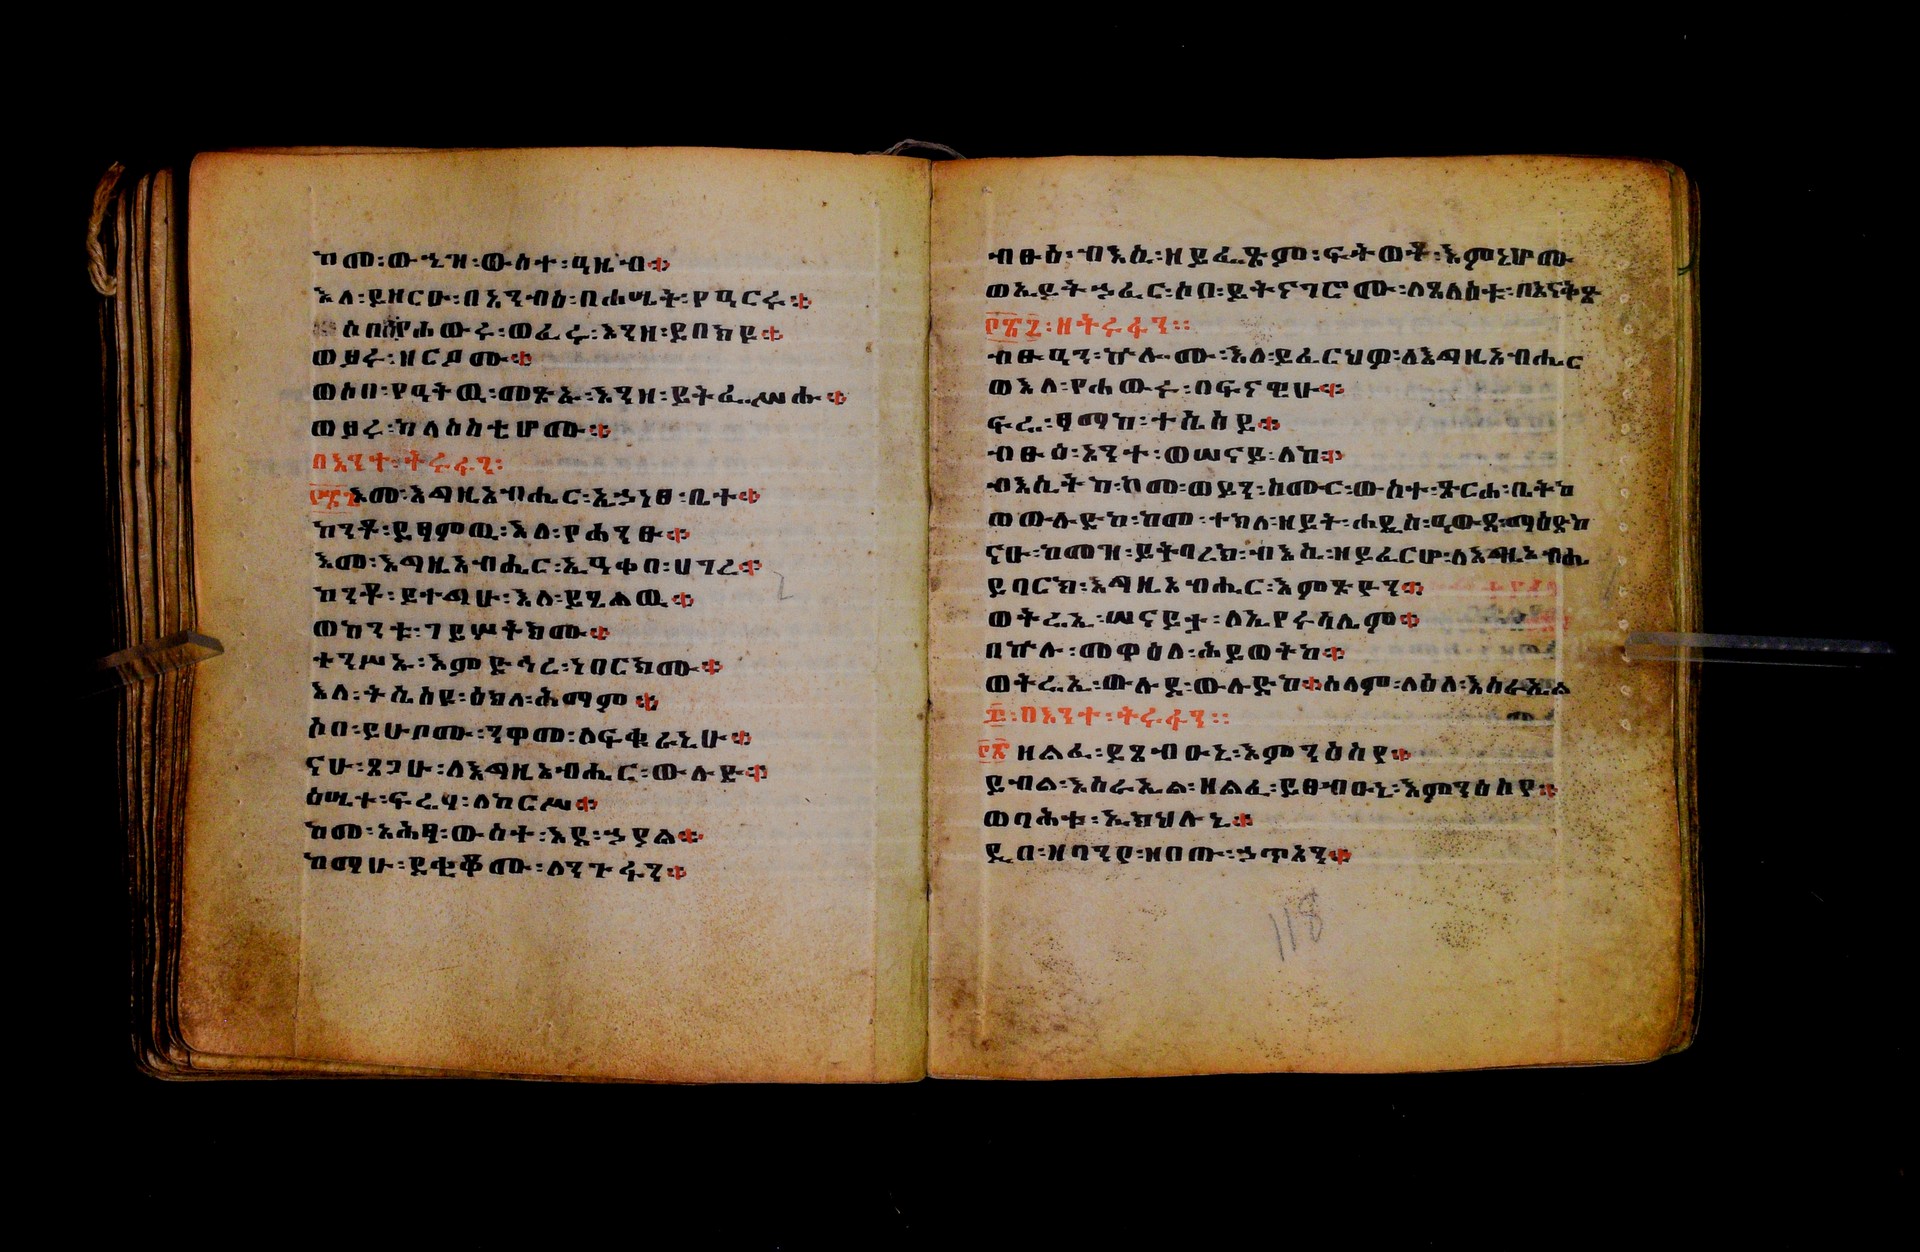 ከመ፡ውኂዝ፡ውስተ፡ዓዜብ።
እለ፡ይዘርዑ፡በአንብዕ፡በሐሤት፡የዓርሩ።
ሶበሰ፡የሐውሩ፡ወፈሩ፡እንዘ፡ይበክዩ።
ወፆሩ፡ዘርዖሙ።
ወሶበ፡የዓትዉ፡መጽኡ፡እንዘ፡ይትፌሥሑ።
ወፆሩ፡ከላስስቲሆሙ።
በእንተ፡ትሩፋን፡
፻፳፮እመ፡እግዚአብሔር፡ኢኃነፀ፡ቤተ።
ከንቶ፡ይፃምዉ፡እለ፡የሐንፁ።
እመ፡እግዚአብሔር፡ኢዓቀበ፡ሀገረ።
ከንቶ፡ይተግሁ፡እለ፡ይሄልዉ።
ወከንቱ፡ገይሦትክሙ።
ተንሥኡ፡እምድኅረ፡ነበርክሙ።
እለ፡ትሴሰዩ፡ዕክለ፡ሕማም።
ሶበ፡ይሁቦሙ፡ንዋመ፡ለፍቁራኒሁ።
ናሁ፡ጸጋሁ፡ለእግዚአብሔር፡ውሉድ።
ዕሤተ፡ፍሬሃ፡ለከርሥ።
ከመ፡አሕፃ፡ውስተ፡እደ፡ኃያል።
ከማሁ፡ደቂቆሙ፡ለንጉፋን።
ብፁዕ፡ብእሲ፡ዘይፌጽም፡ፍትወቶ፡እምኔሆሙ
ወኢይትኃፈር፡ሶበ፡ይትናገሮሙ፡ለጸላእቱ፡በአናቅጽ
፻፳፯፡ዘትሩፋን፡፡
ብፁዓን፡ኵሎሙ፡እለ፡ይፈርህዎ፡ለእግዚአብሔር
ወእለ፡የሐውሩ፡በፍናዊሁ።
ፍሬ፡ፃማከ፡ተሴሰይ።
ብፁዕ፡አንተ፡ወሠናይ፡ለከ።
ብእሲትከ፡ከመ፡ወይን፡ስሙር፡ውስተ፡ጽርሐ፡ቤትከ
ወውሉድከ፡ከመ፡ተክለ፡ዘይት፡ሐዲስ፡ዓውደ፡ማዕድከ
ናሁ፡ከመዝ፡ይትባረክ፡ብእሲ፡ዘይፈርሆ፡ለእግዚአብሔ
ይባርክ፡እግዚአብሔር፡እምጽዮን።
ወትሬኢ፡ሠናይታ፡ለኢየሩሳሌም።
በኵሉ፡መዋዕለ፡ሕይወትከ።
ወትሬኢ፡ውሉደ፡ውሉድከ።ሰላም፡ላዕለ፡እስራኤል
፡በእንተ፡ትሩፋን፡፡
ዘልፈ፡ይጸብዑኒ፡እምንዕስየ።
ይብል፡እስራኤል፡ዘልፈ፡ይፀብዑኒ፡እምንዕስየ።
ወባሕቱ፡ኢክህሉኒ።
ዲበ፡ዘባንየ፡ዘበጡ፡ኃጥአን።
118